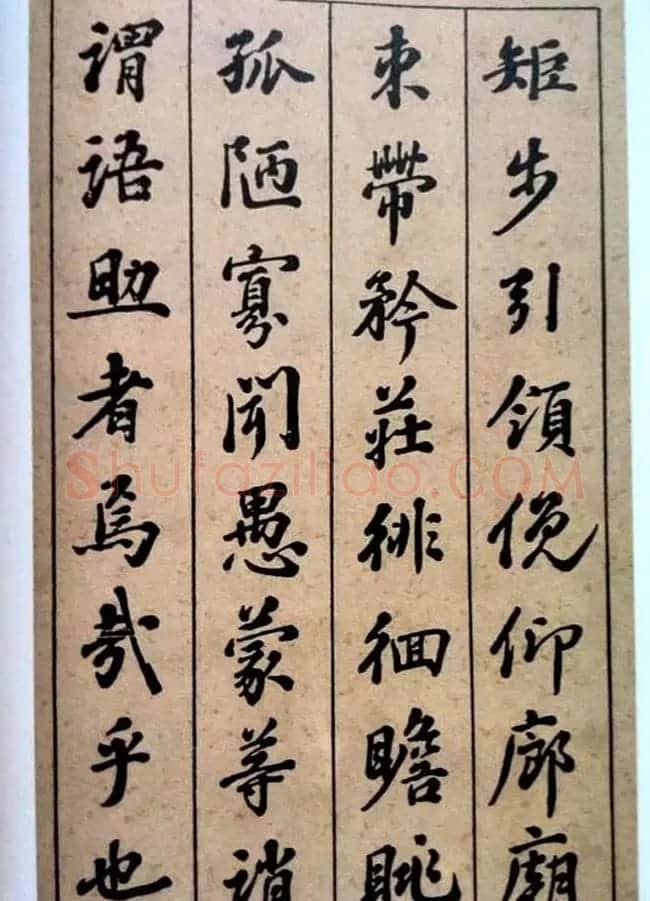 矩步引領俛仰廊廟
束帶矜莊徘徊瞻眺
孤陋寡聞愚蒙等誚
謂語助者焉哉乎也
Shufaziliao.COM